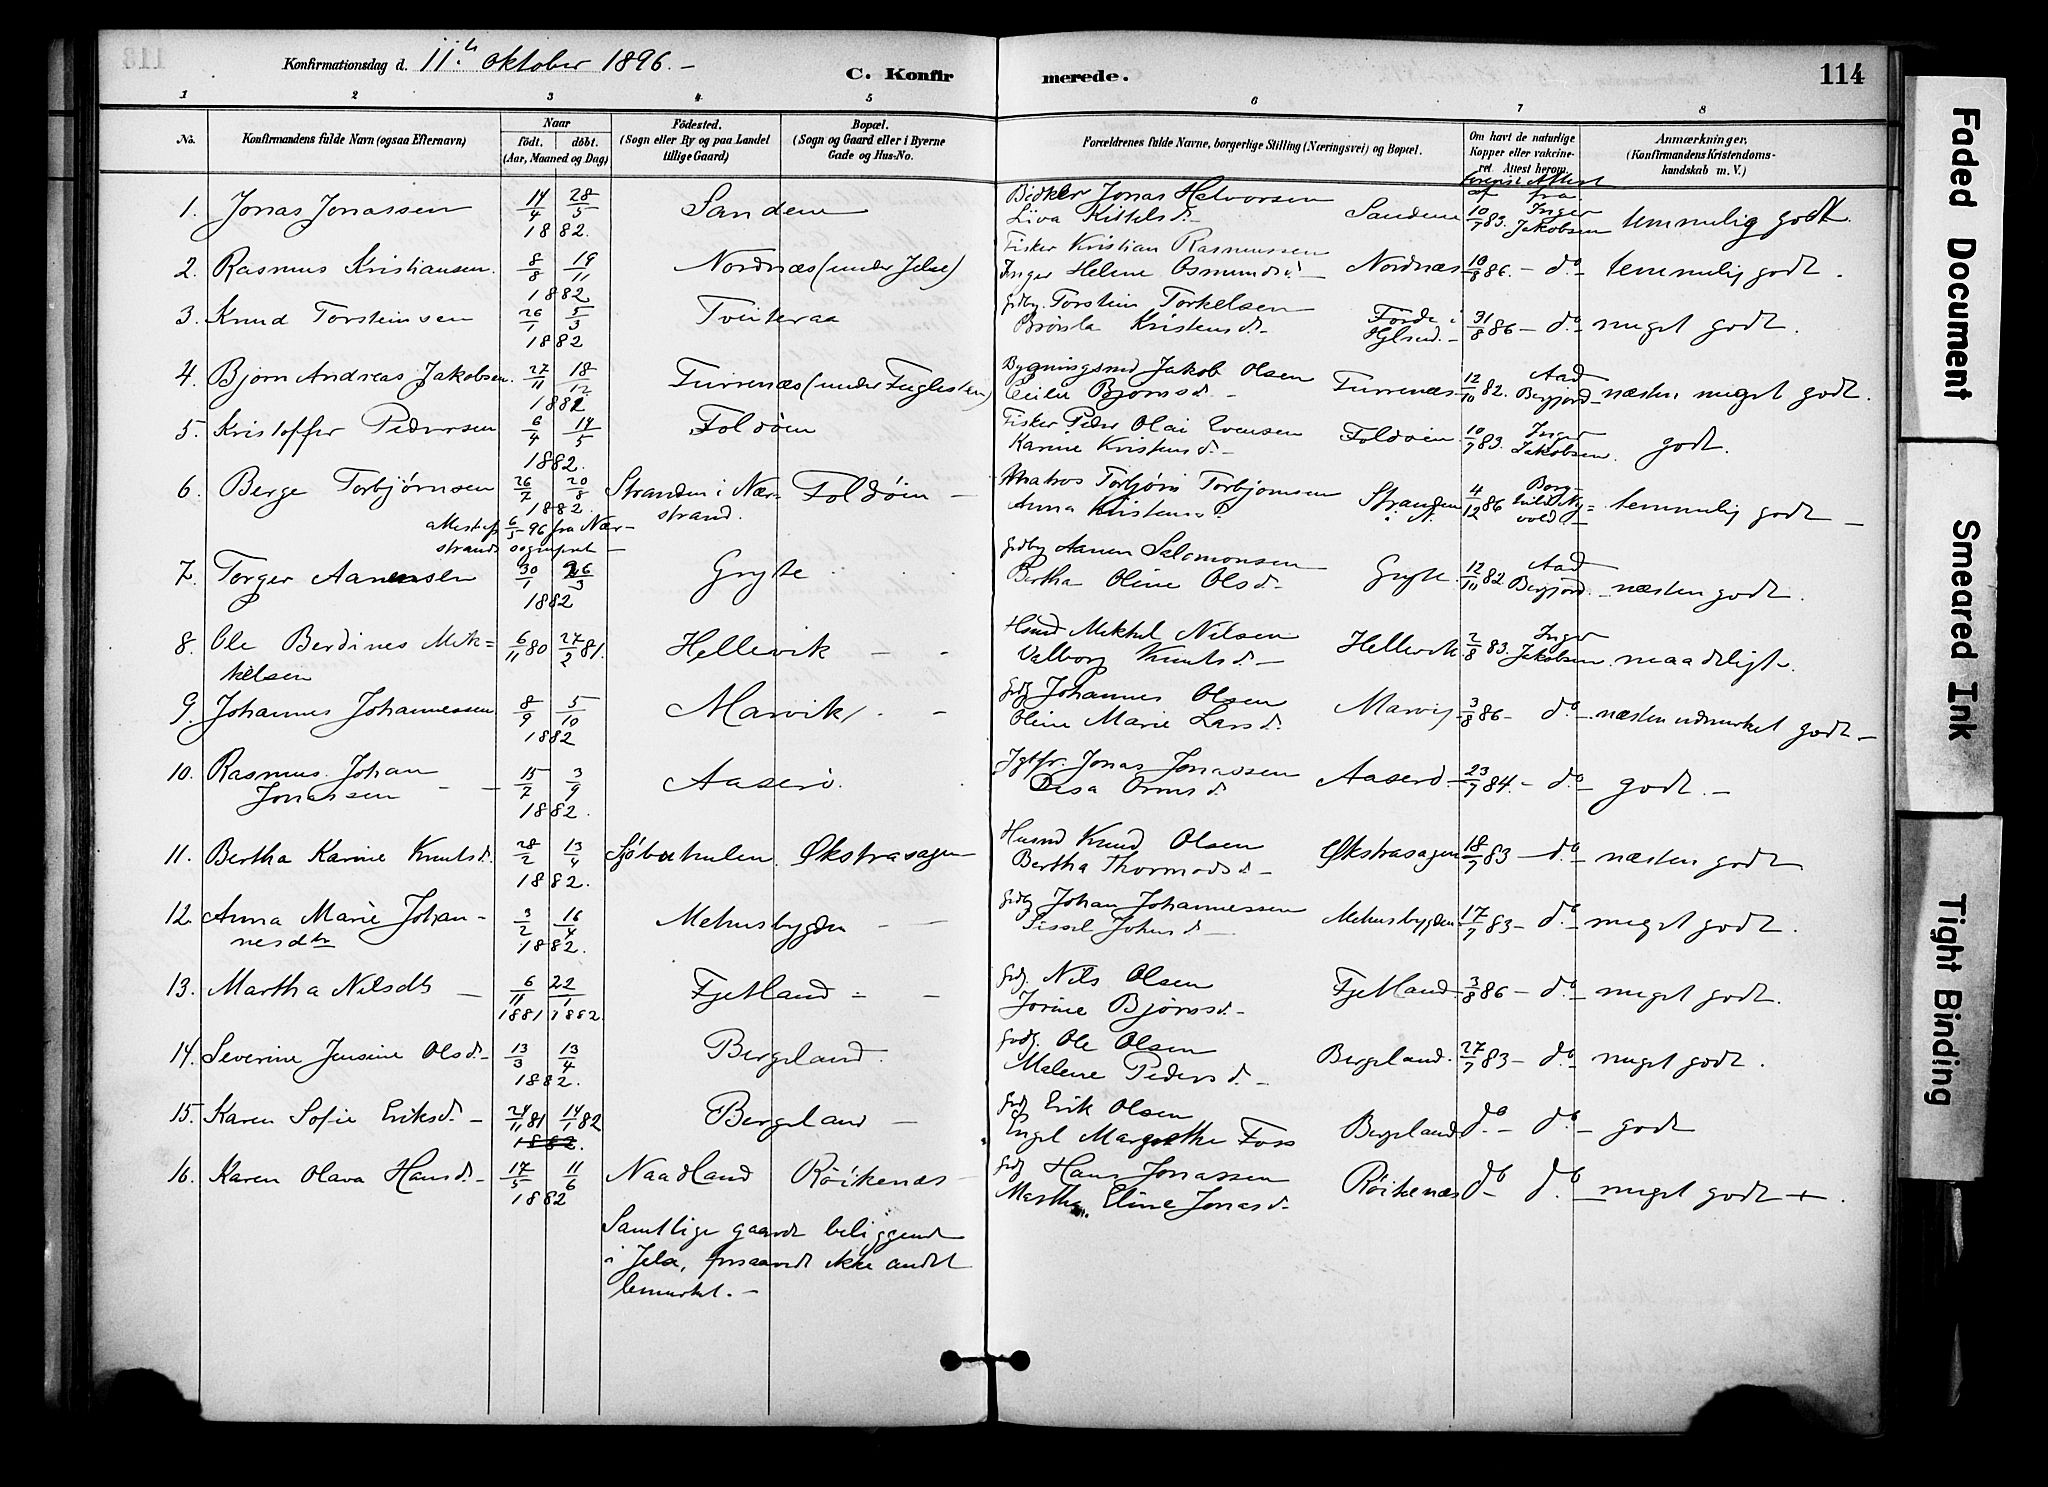 113
Konfirmationsdag d. 11te Oktober 1896. –
C. Konfirmerede.
114
1 2 3 4 5 6 7 8
No.
Konfirmandens fulde Navn (ogsaa Efternavn)
Naar
født. døbt.
(Aar, Maaned og Dag)
Fødested.
(Sogn eller By og paa Landet
tillige Gaard)
Bopæl.
(Sogn og Gaard eller i Byerne
Gade og Hus-No.
Forældrenes fulde Navne, borgerlige Stilling (Næringsvei) og Bopæl.
Om havt de naturlige
Kopper eller vakcine-
ret. Attest herom.
Anmærkninger.
(Konfirmandens Kristendoms-
kundskab m. V.)
1. Jonas Jonassen 14/4 28/5 1882 Sandene Jonas Halvorsen Liva Kittelsd. Sandene 10/7 83. Inger Jakobsen temmelig godt.
2. Rasmus Kristiansen. 8/8 19/11 1882 Nordnæs (under Jelse) Fisker Kristian Rasmussen Inger Helene Osmundsd. – Nordnæs 10/8 86. – do – temmelig godt.
3. Knud Torsteinsen 26/1 5/3 1882 Tveiteraa Grdbr. Torstein Torkelsen Kristensd. – 31/8 86 – do – meget godt.
4. Bjørn Andreas Jakobsen. 27/11 18/12 1881 Turrenæs (under Fuglesten) Bygningssmd Jakob Olsen Bjørnsd. – Turrenæs 12/10 82. Aad Bergjord – næsten meget godt.
5. Kristoffer Pedersen 6/4 14/5 1882. Foldøen Fisker Peder Olai Evensen Karine Kristensd. – Foldøen 10/7 83. Inger Jakobsen. godt.
6. Berge Torbjørnsen 26/7 20/8 1882. Stranden i Nær-
strand. Foldøen – Matros Torbjørn Torbjørnsen Anna Kristensd. Stranden i N. 4/12 86 temmelig godt –
Attest af 6/5 96 fra Nær-
strands sognepræst –
7. Torger Aanensen 30/1 26/3 1882 Gryte Grdbr Aanen Salomonsen Bertha Oline Olsd. – Gryte. 12/10 82. Aad Bergjord. – næsten godt.
8. Ole Berdines Mik=
kelsen 6/11 80 27/2 81. Hellevik – – Husmd Mikkel Nilsen Valborg Knutsd. – Hellevik. 2/8 83. Inger Jakobsen. maadeligt.
9. Johannes Johannessen 8/9 5/10 1882 Marvik. – Johannes Olsen Oline Marie Larsd. Marvig 3/8 86 – do – næsten udmerket godt –
10. Rasmus Johan
Jonassen – – 15/7 3/9 1882. Aaserö. Jonas Jonassen Ormsd. Aaserö. 23/7 84. – do – godt. –
11. Bertha Karine Knutsd. 28/2 13/4 1882. Økstrasagen Husmd Knud Olsen Bertha Thormodsd – Økstrasagen 18/7 83 – do – næsten godt
12. Anna Marie Johan-
nesdtr 3/2 16/4 1882. Mehusbygden – – Johan Johannessen Sissel Johnsd. – Mehusbygden 17/7 83 – do – meget godt.
13. Martha Nilsdtr – 6/11 1881 22/1 1882. Fjetland – – Nils Olsen Jorine Bjørnsd. – Fjetland – 3/8 86 – do – meget godt.
14. Severine Jensine Olsd. – 13/3 13/4 1882. Bergeland. Ole Olsen Malene Pedersd. – Bergeland. 27/7 83 – do – meget godt.
15. Karen Sofie Eriksd. – 24/11 81 14/1 82 1882. Bergeland – Erik Olsen Engel Margrethe Foss Bergeland do – do – godt
16. Karen Olava Hansd. – 17/5 11/6 1882 Naadland Röikenæs – Hans Jonassen Martha Eline Jonasd. – Röikenæs do – do – meget godt + .
Samtlige gaarde beliggende
i Jelse, forsaavidt ikke andet
bemerket. –
Faded Document
Smeared Ink
Tight Binding